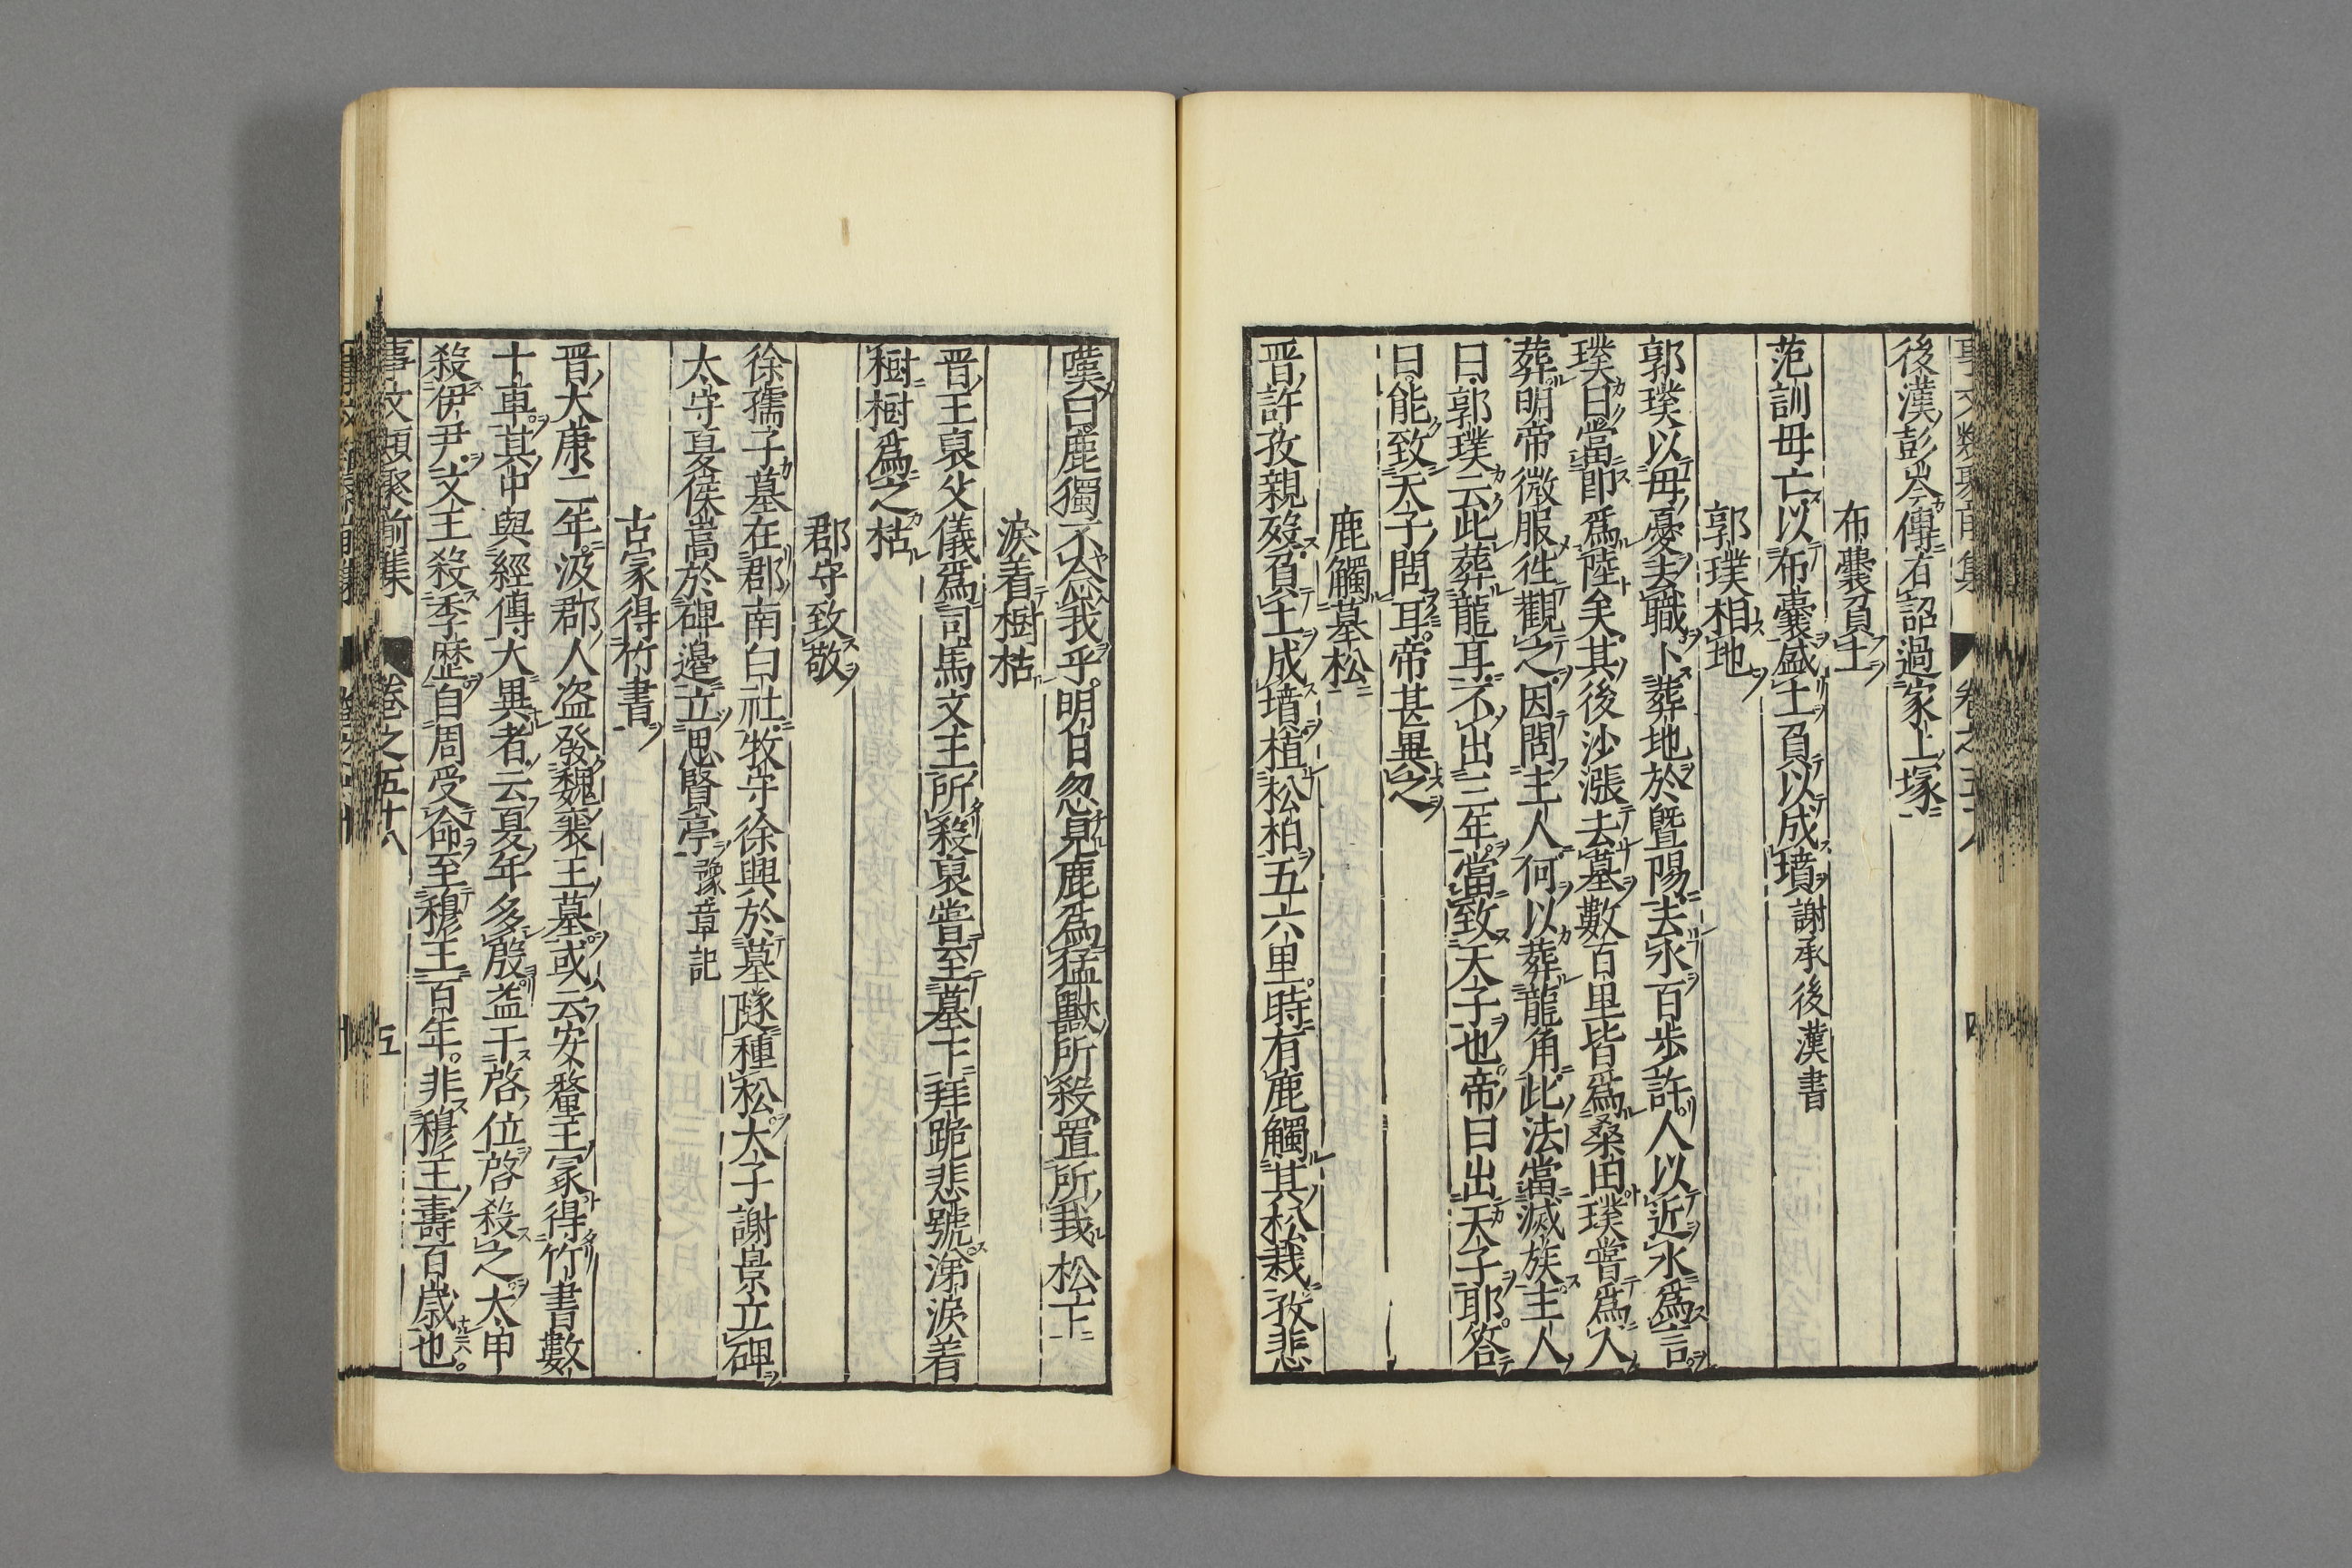 後漢彭㓜傳有詔過家上塚
布囊負土
范訓毋亡以布囊盛土負以成墳謝承後漢書
郭璞相地
郭璞以毋憂去職卜葬地於曁陽去水百歩許人以近水爲言
璞曰當即爲陸矣其後沙漲去墓數百里皆爲桑田璞嘗爲人
葬明帝微服徃觀之因問主人何以葬龍角此法當滅族主人
曰郭璞云此葬龍耳不出三年當致天子也帝曰出天子耶答
曰能致天子問耳帝甚異之
鹿觸墓松
晋許孜親歿負土成墳植松柏五六里時有鹿觸其松栽孜悲
嘆曰鹿獨不念我乎明日忽見鹿爲猛獸所殺置所我松下
淚着樹枯
晋王裒父儀爲司馬文王所殺裒嘗至墓下拜跪悲號涕淚着
樹樹爲之枯
郡守致敬
徐孺子墓在郡南白社牧守徐興於墓隧種松太子謝景立碑
太守夏侯嵩於碑邊立思賢亭豫章記
古冢得竹書
晋大康二年汲郡人盗發魏襄王墓或云安釐王冢得竹書數
十車其中與經傳大異者云夏年多殷益干啓位啓殺之太甲
殺伊尹文王殺季歴自周受命至穆王百年非穆王壽百歳也
事文類聚前集 卷之五十八 五